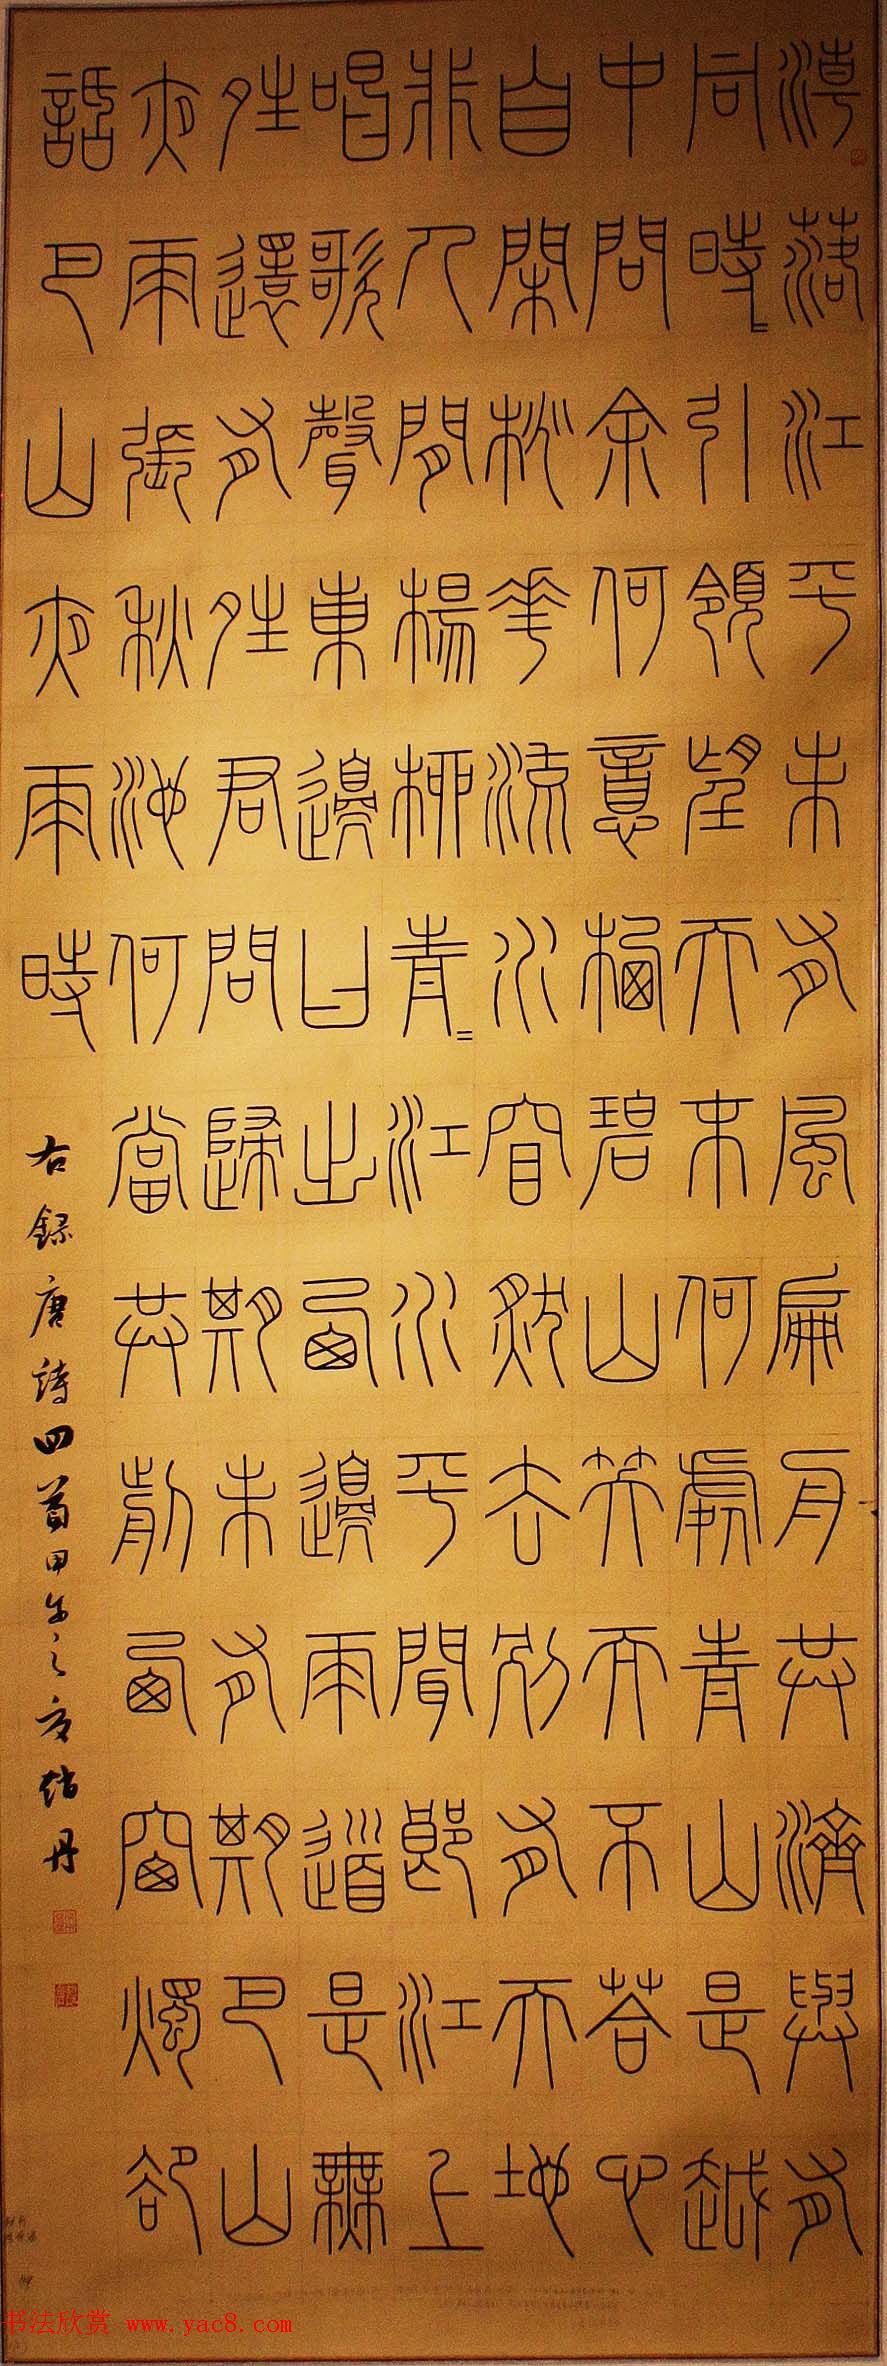 潮落江平未有風扁舟共濟與有
同時=引領望天末何處青山是越
中問余何意栖碧山笑而不答心
自閑桃花流水窅然去別有天地
非人間楊柳青=江水平聞郎江上
唱歌聲東邊日出西邊雨道是無
夝還有夝君問歸期未有期巴山
夜雨漲秋池何當共剪西窗燭卻
話巴山夜雨時
右錄唐詩四首甲午之夏丹
书法欣赏 www.yac8.com